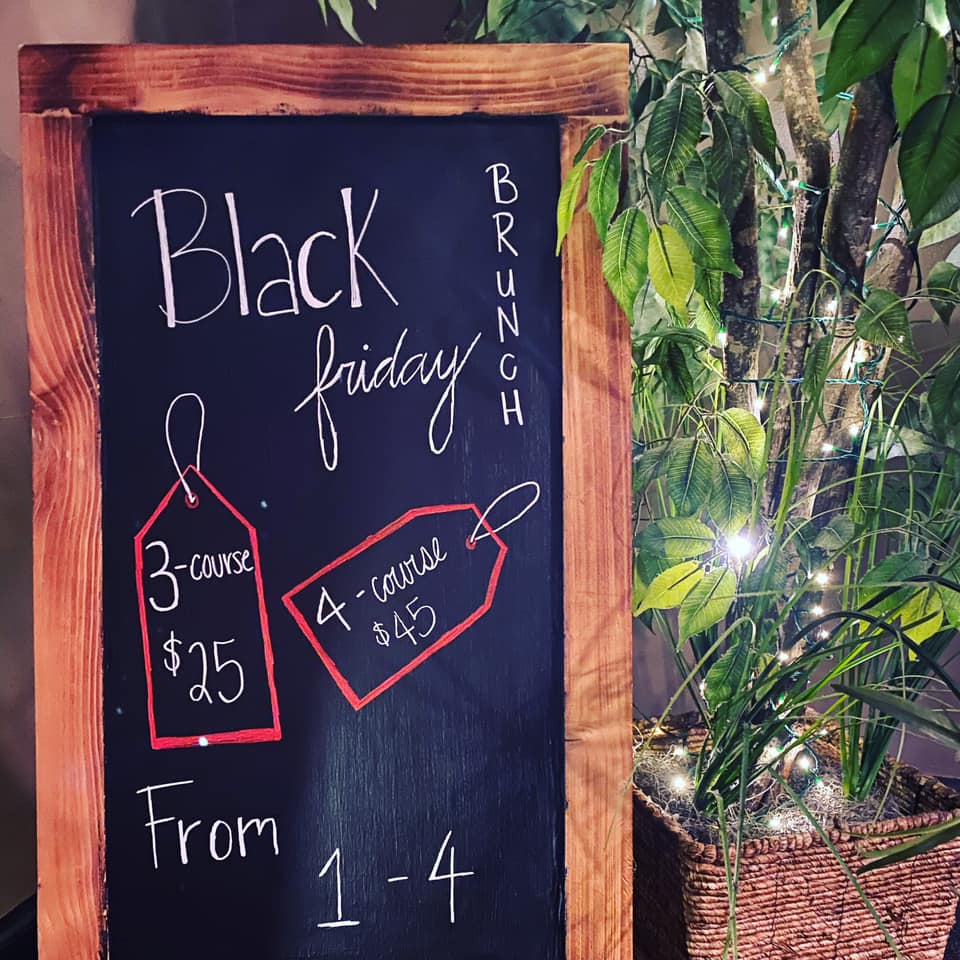 Black
friday
BRUNCH
3-course
$25
4-course
$45
From
1-4